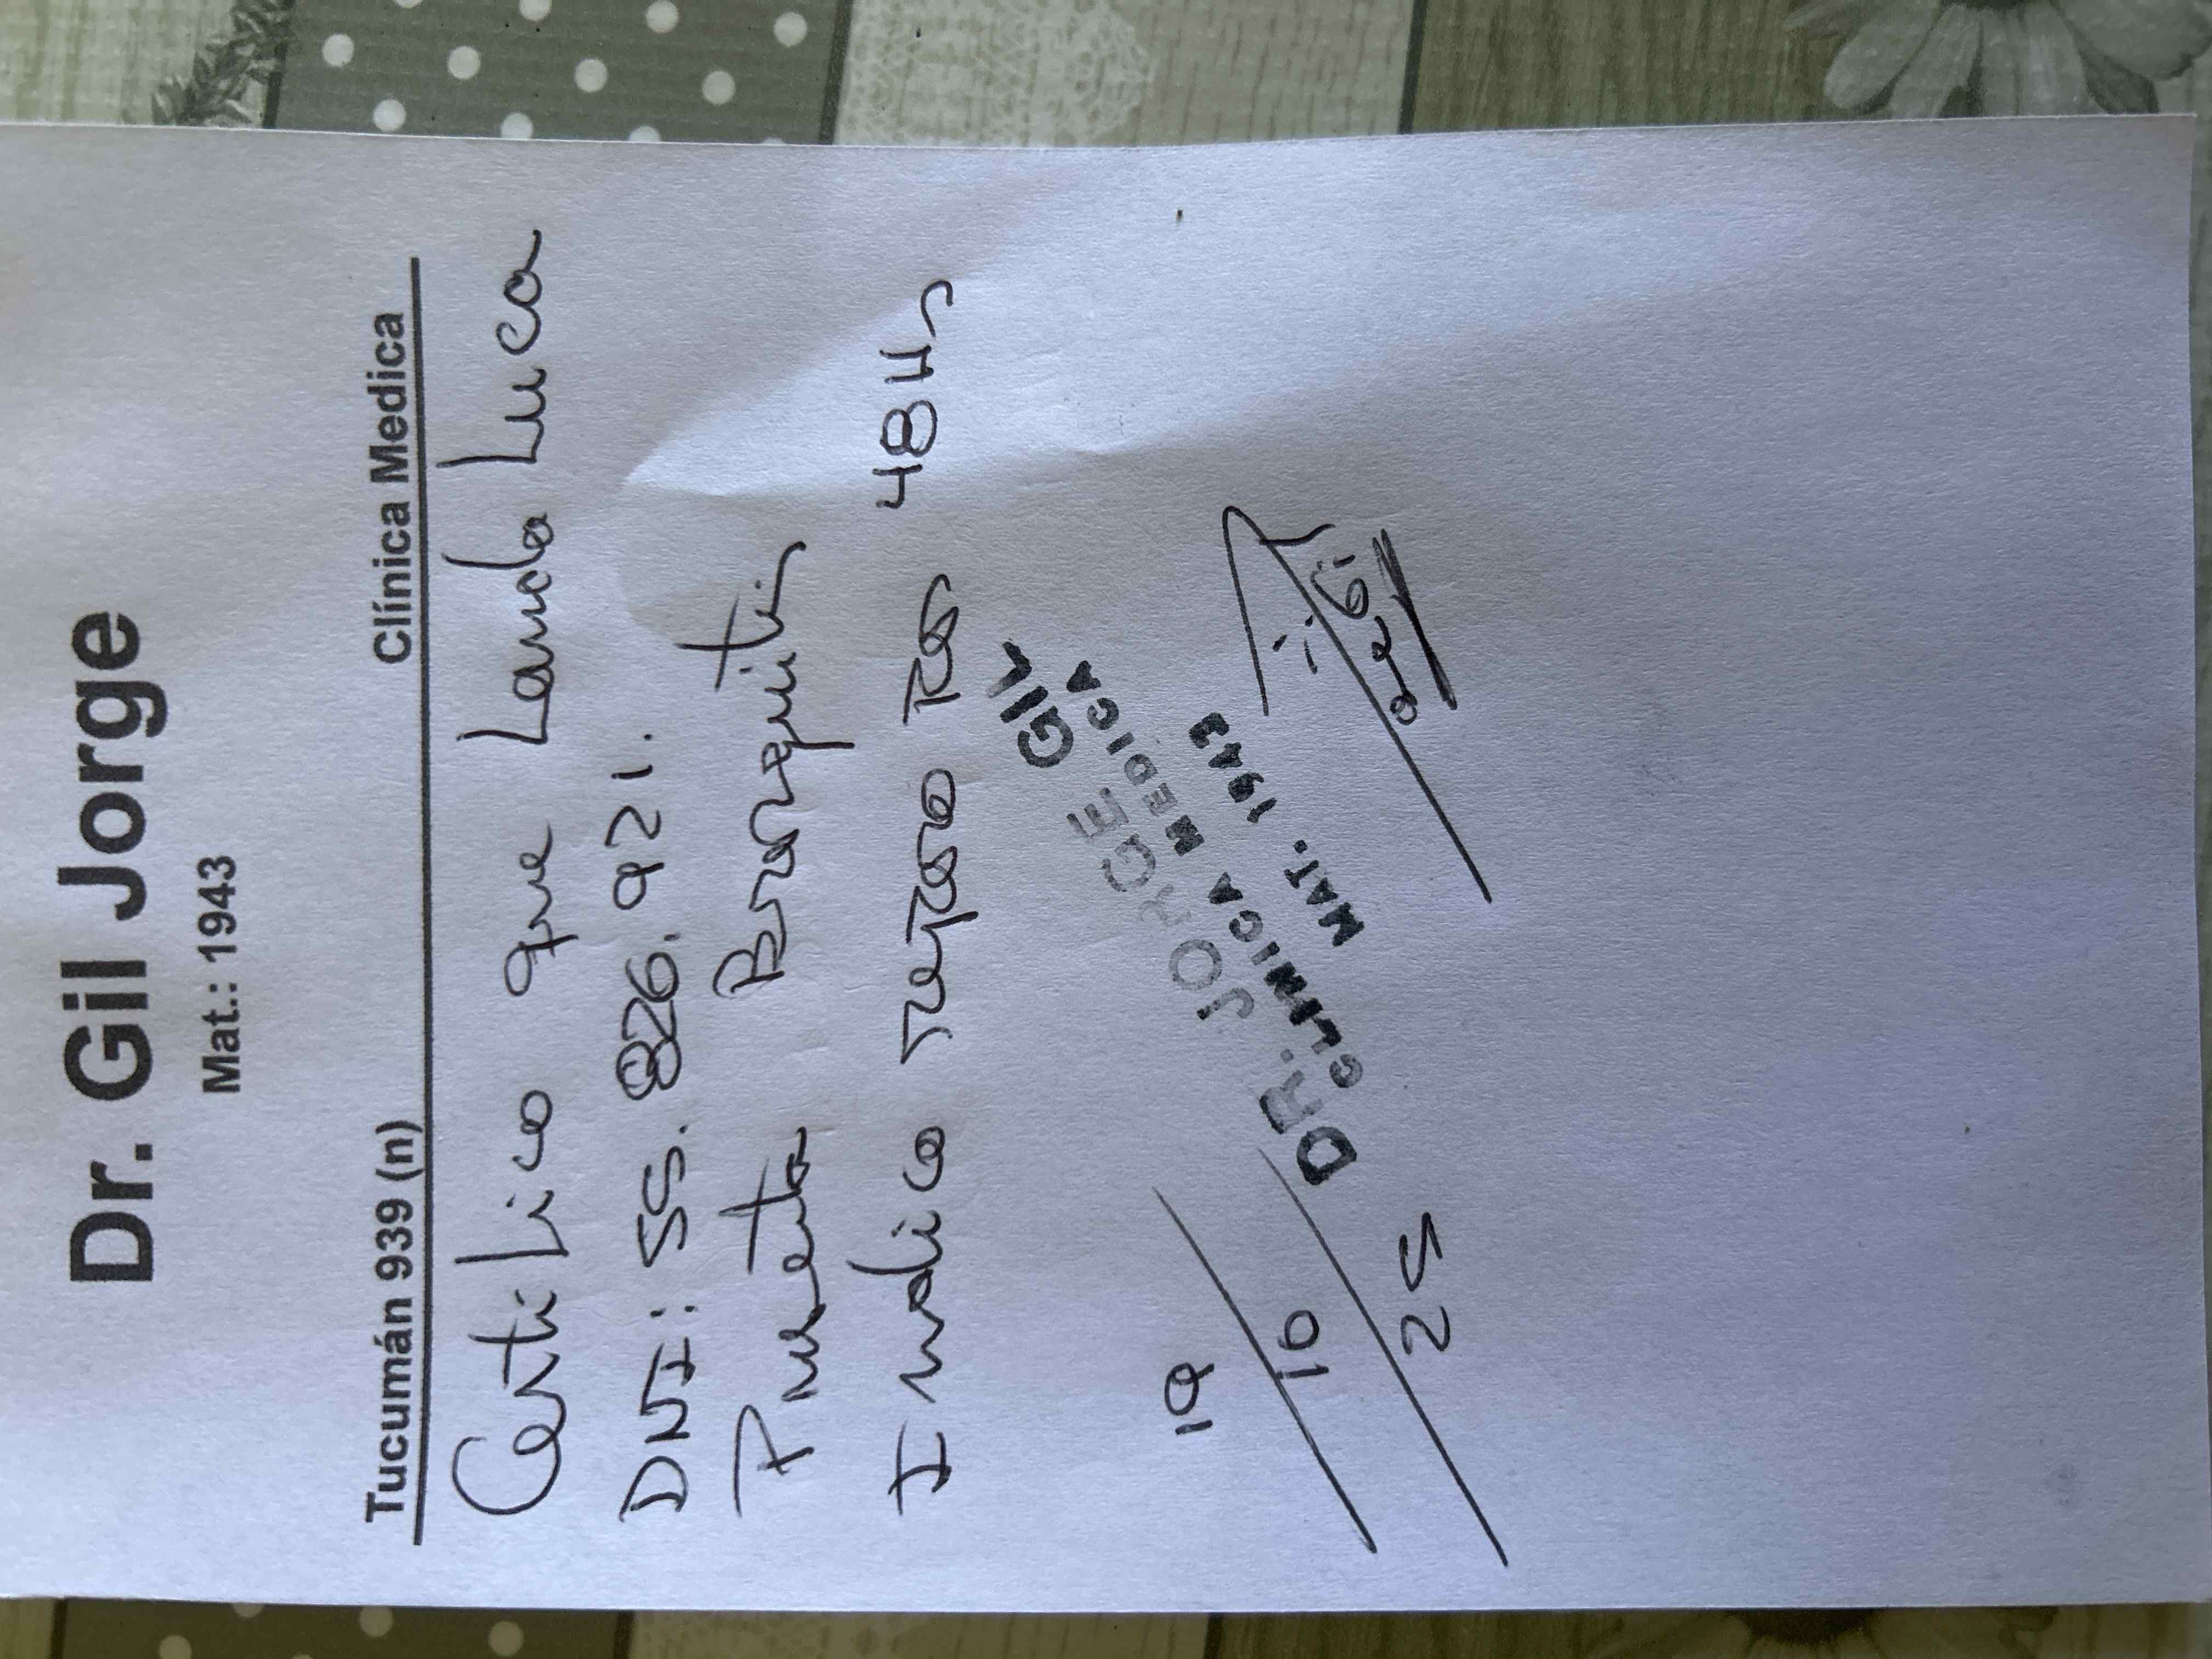 Dr. Gil Jorge
Mat.: 1943
Tucumán 939 (n) Clínica Medica
Certifico que Landa Luca
DNI: 55.826.921.
Presenta Bronquitis
Indico reposo por 48 Hs
DR. JORGE GIL
CLINICA MEDICA
MAT. 1943
19
10
25